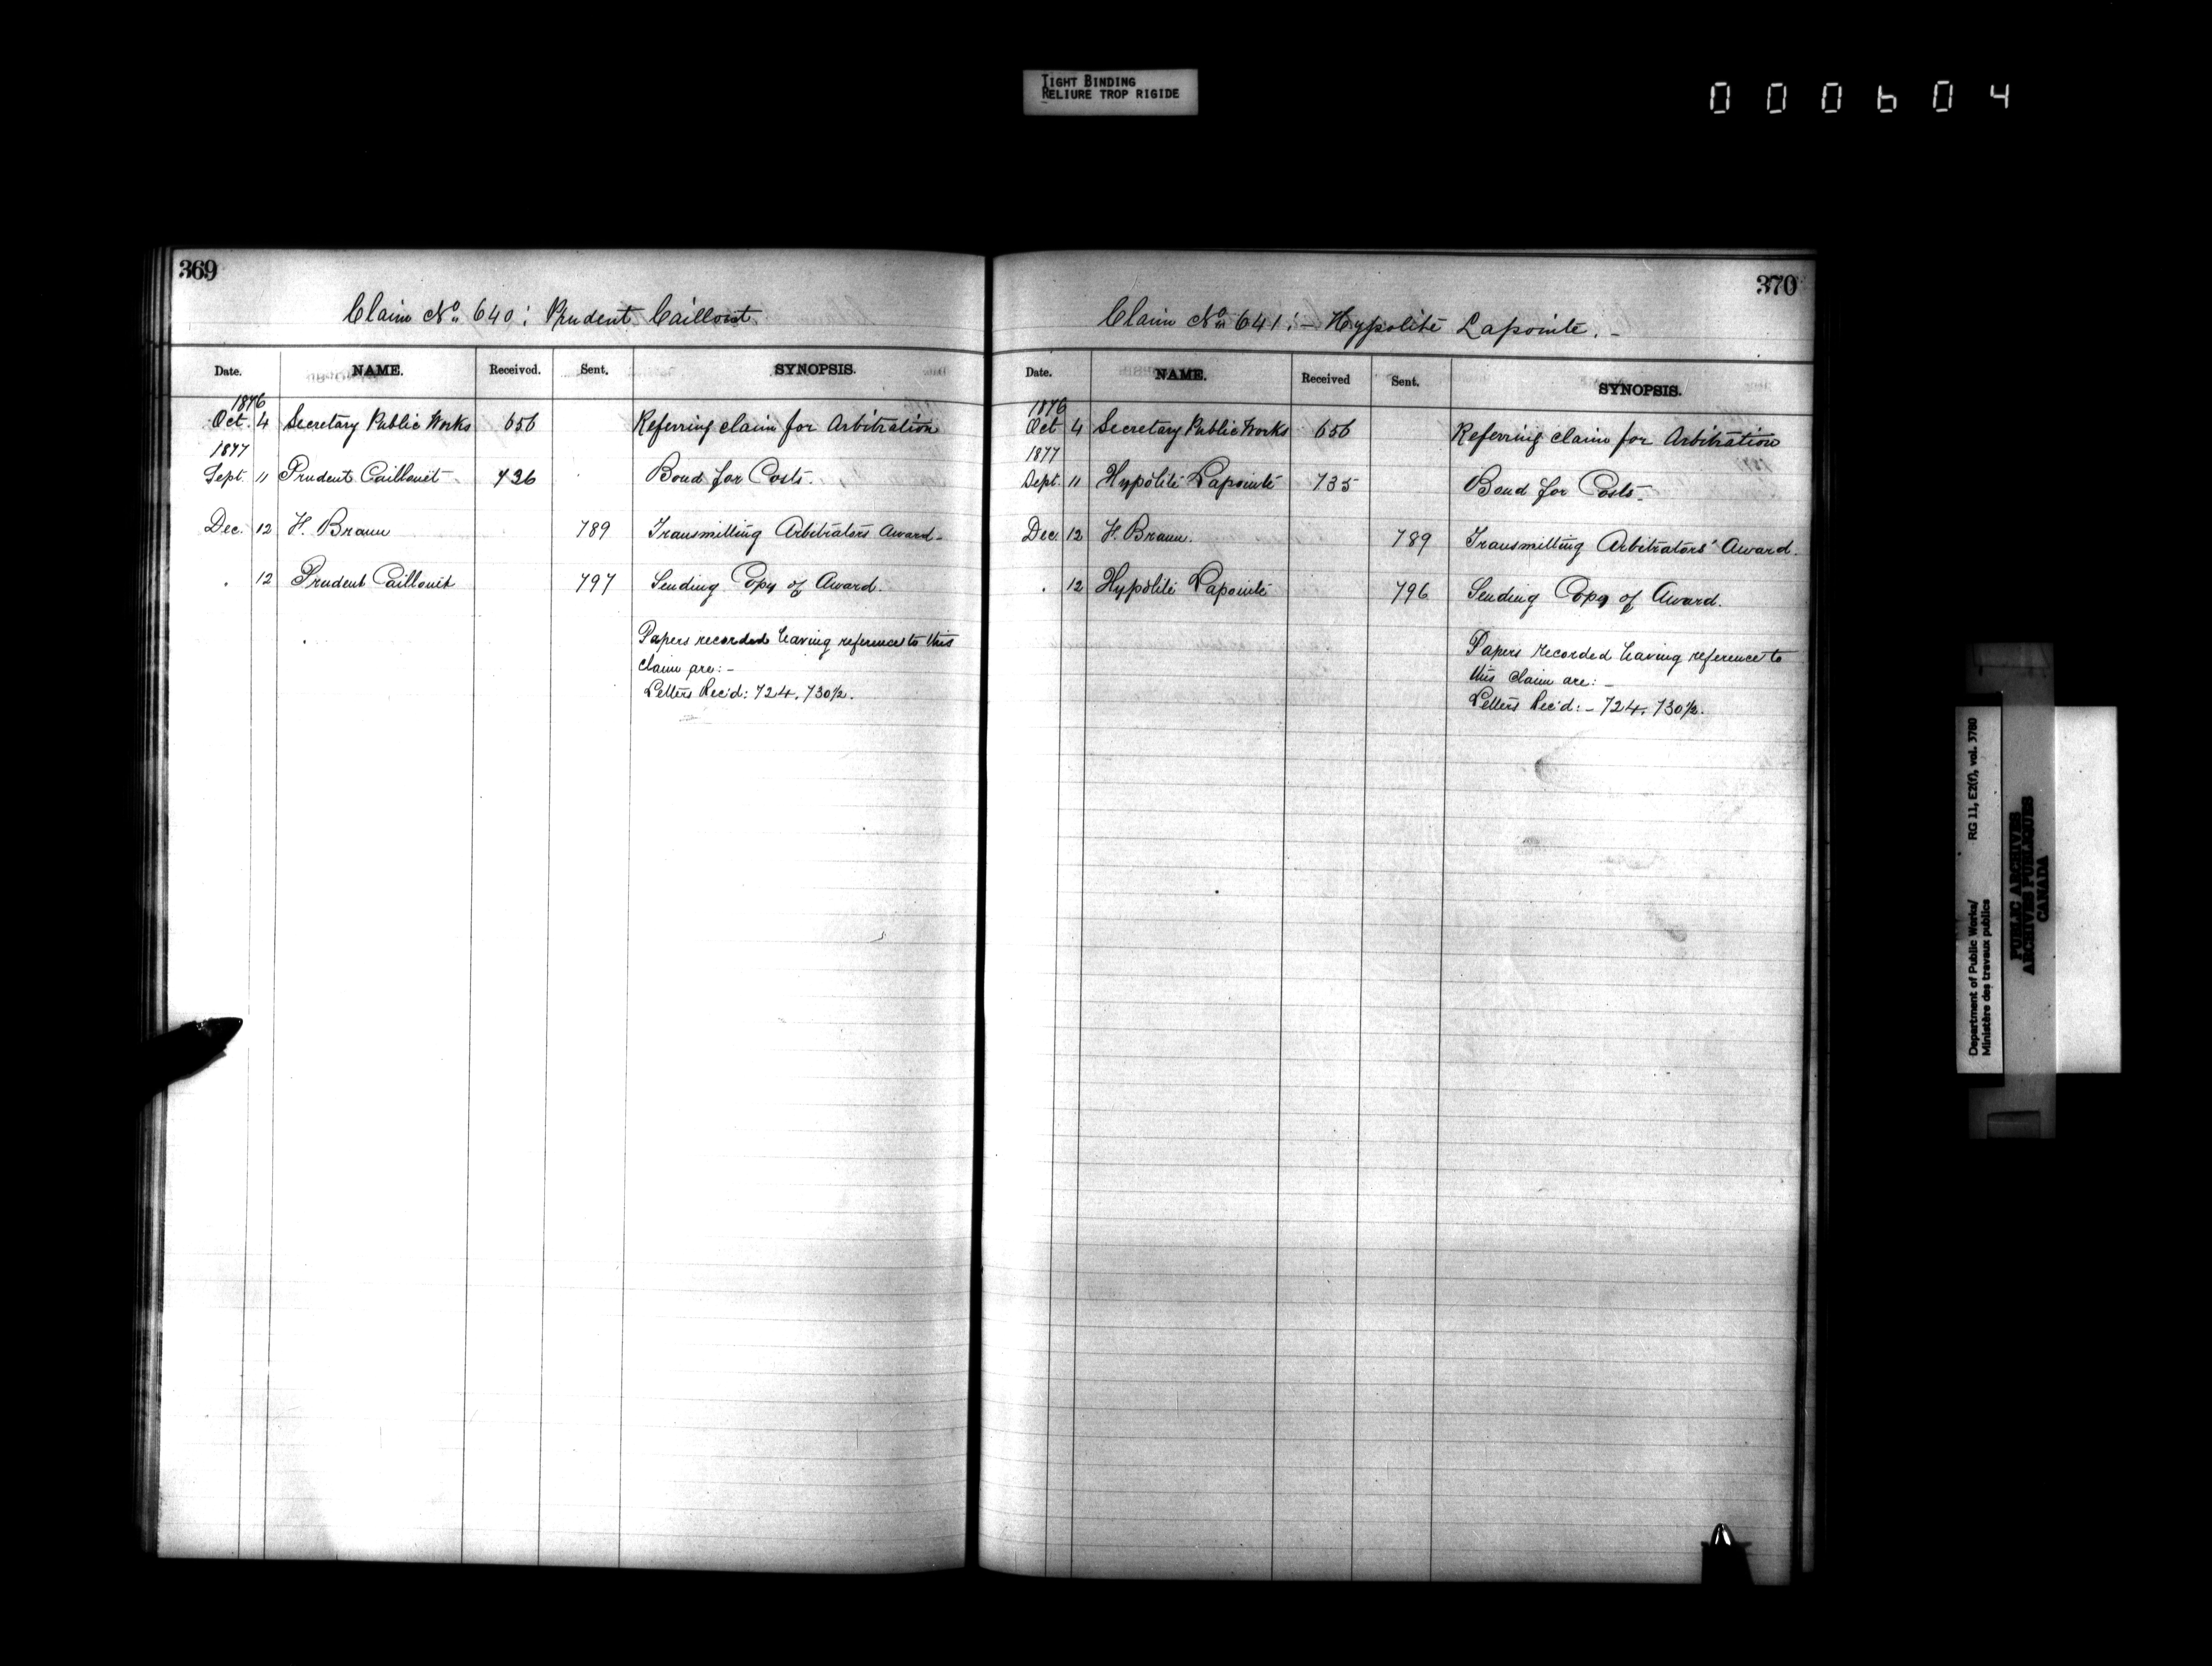 TIGHT BINDING
RELIURE TROP RIGIDE
000604
369
Claim No. 640: Prudent Caillouet
Date. NAME. Received. Sent. SYNOPSIS.
1876
Oct. 4 Secretary Public Works 656 Referring claim for Arbitration
1877
Sept. 11 Prudent Caillouet 736 Bond for Costs.
Dec. 12 F. Braun 789 Transmitting Arbitrators Award-
. 12 Prudent Caillouet 797 Sending Copy of Award.
Papers recorded having reference to this
claim are:-
Letters Rec'd: 724. 730½.
370
Claim No. 641:- Hypolite Lapointe.-
Date. NAME. Received Sent. SYNOPSIS.
1876
Oct 4 Secretary Public Works 656 Referring claim for Arbitration
1877
Sept. 11 Hypolite Lapointe 735 Bond for Costs.
Dec. 12 F. Braun. 789 Transmitting Arbitrators' Award.
. 12 Hypolite Lapointe 796 Sending Copy of Award.
Papers recorded having reference to
this claim are:-
Letters Rec'd:- 724. 730½.
Department of Public Works/ RG 11, E2(f), vol. 3780
Ministère des travaux publics
PUBLIC ARCHIVES
ARCHIVES PUBLIQUES
CANADA